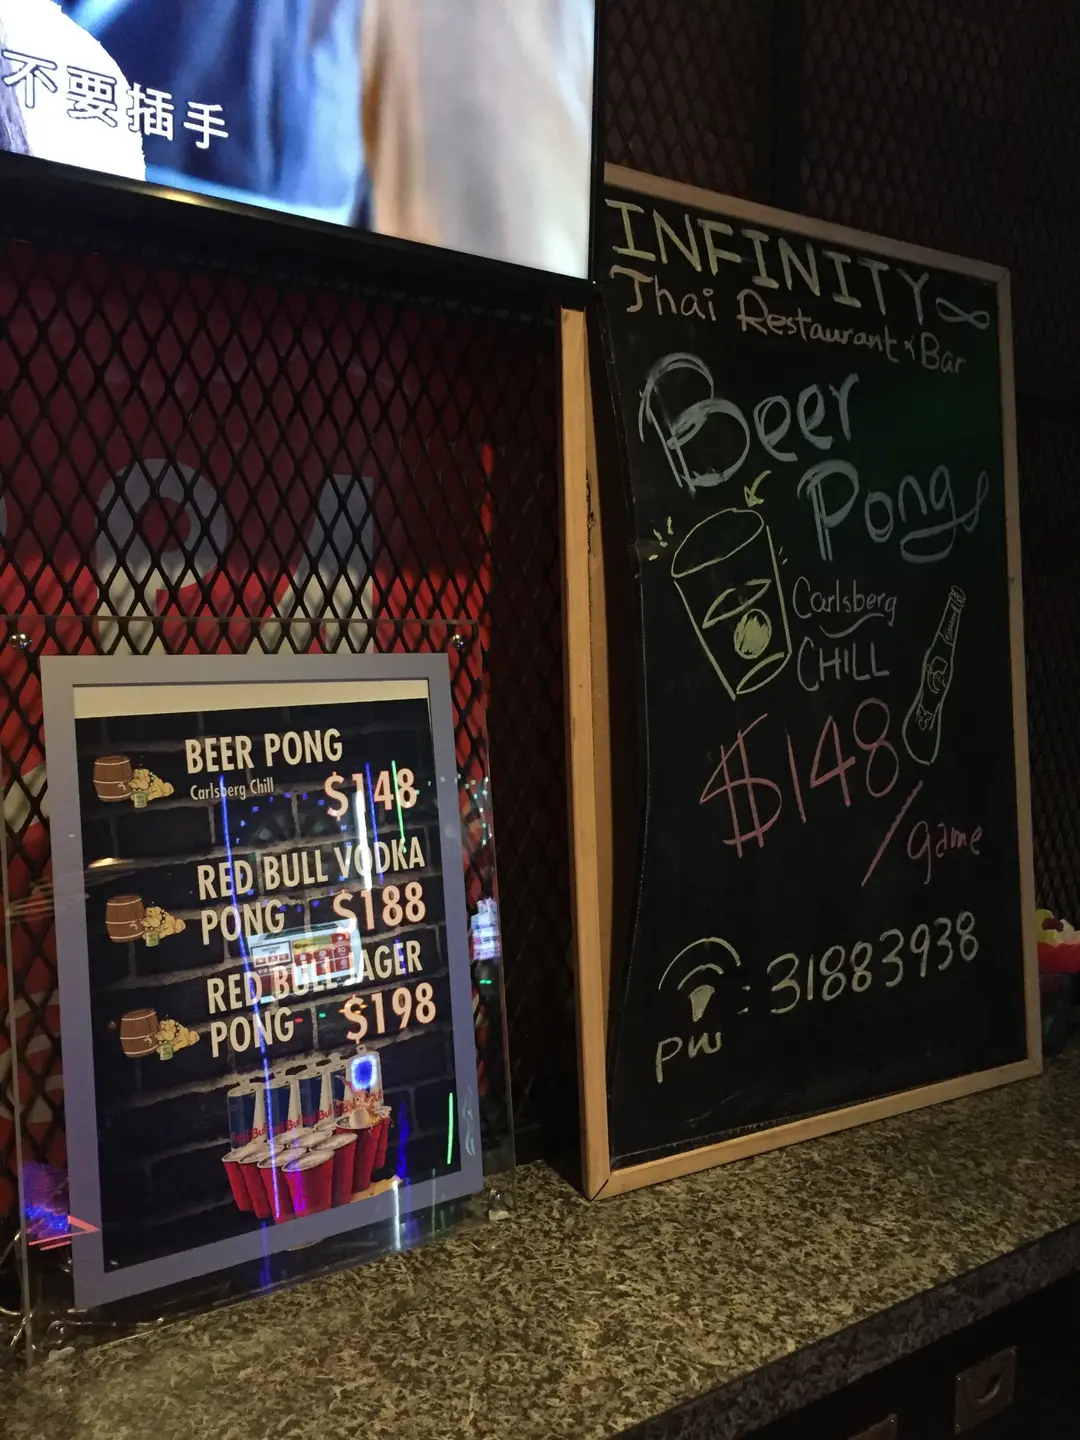 不要插手
INFINITY
Thai Restaurant & Bar
Beer
Pong
Carlsberg
CHILL
$148
/game
PW : 31883938
BEER PONG
Carlsberg Chill
$148
RED BULL VODKA
PONG $188
RED BULL JAGER
PONG $198